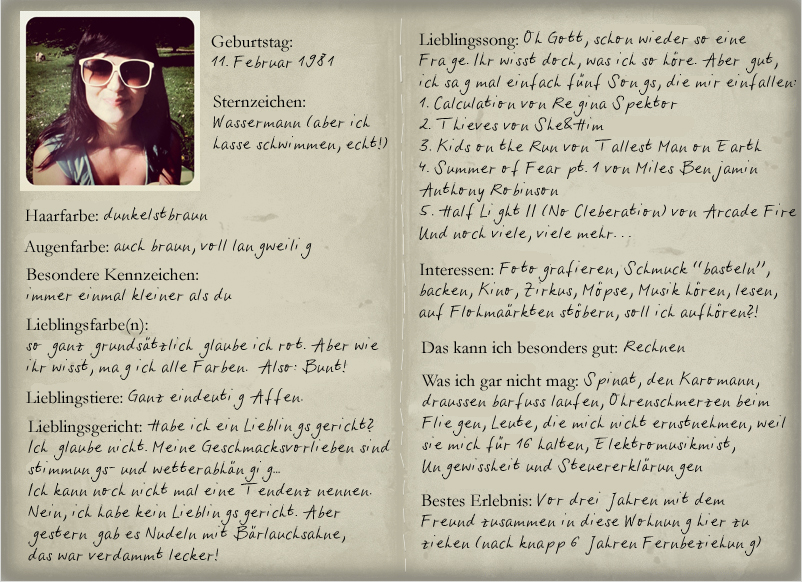 Geburtstag:
11. Februar 1981
Sternzeichen:
Wassermann (aber ich
hasse schwimmen, echt!)
Haarfarbe: dunkelstbraun
Augenfarbe: auch braun, voll langweilig
Besondere Kennzeichen:
immer einmal kleiner als du
Lieblingsfarbe(n):
so ganz grundsätzlich glaube ich rot. Aber wie
ihr wisst, mag ich alle Farben. Also: Bunt!
Lieblingstiere: Ganz eindeutig Affen.
Lieblingsgericht: Habe ich ein Lieblingsgericht?
Ich glaube nicht. Meine Geschmacksvorlieben sind
stimmungs- und wetterabhängig...
Ich kann noch nicht mal eine Tendenz nennen.
Nein, ich habe kein Lieblingsgericht. Aber
gestern gab es Nudeln mit Bärlauchsahne,
das war verdammt lecker!
Lieblingssong: Oh Gott, schon wieder so eine
Frage. Ihr wisst doch, was ich so höre. Aber gut,
ich sag mal einfach fünf Songs, die mir einfallen:
1. Calculation von Regina Spektor
2. Thieves von She&Him
3. Kids on the Run von Tallest Man on Earth
4. Summer of Fear pt. 1 von Miles Benjamin
Anthony Robinson
5. Half Light II (No Cleberation) von Arcade Fire
Und noch viele, viele mehr...
Interessen: Fotografieren, Schmuck "basteln",
backen, Kino, Zirkus, Möpse, Musik hören, lesen,
auf Flohmaärkten stöbern, soll ich aufhören?!
Das kann ich besonders gut: Rechnen
Was ich gar nicht mag: Spinat, den Karomann,
draussen barfuss laufen, Ohrenschmerzen beim
Fliegen, Leute, die mich nicht ernstnehmen, weil
sie mich für 16 halten, Elektromusikmist,
Ungewissheit und Steuererklärungen
Bestes Erlebnis: Vor drei Jahren mit dem
Freund zusammen in diese Wohnung hier zu
ziehen (nach knapp 6 Jahren Fernbeziehung)